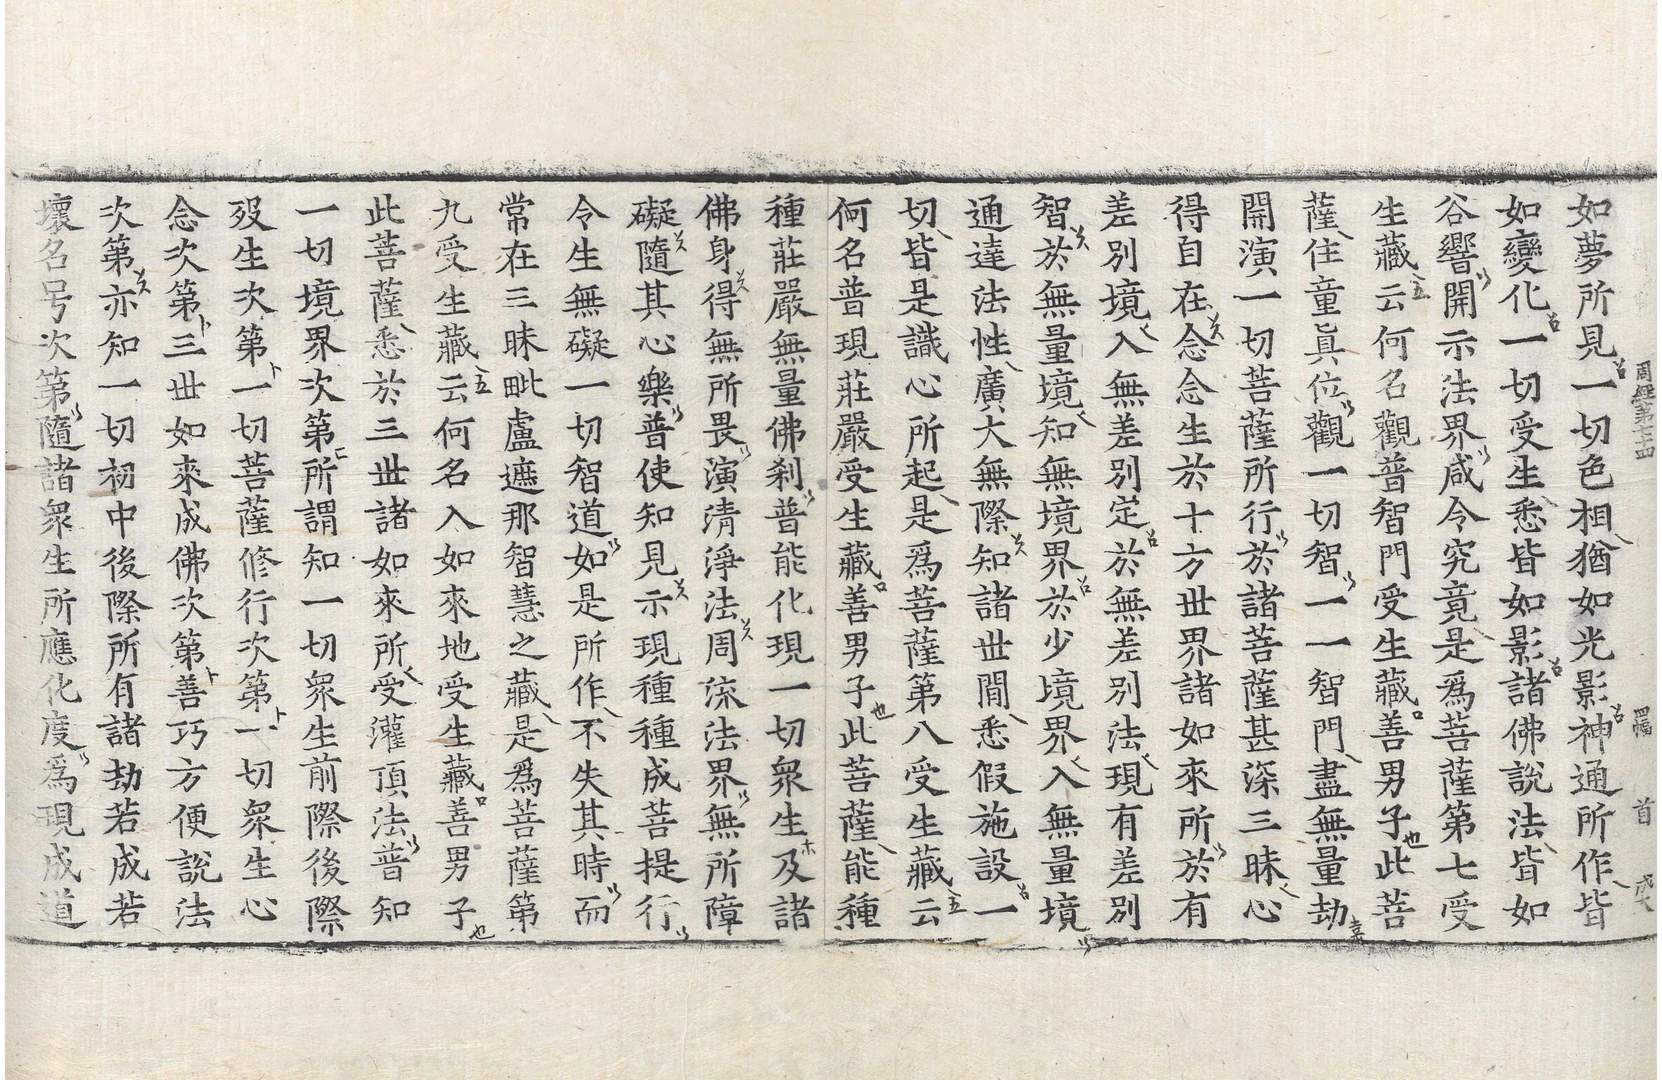 如夢所見一切色相猶如光影神通所作皆
如變化一切受生悉皆如影諸佛說法皆如
谷響開示法界咸令究竟是爲菩薩第七受
生藏云何名觀普智門受生藏善男子此菩
薩住童眞位觀一切智一一智門盡無量劫
開演一切菩薩所行於諸菩薩甚深三昧心
得自在念念生於十方世界諸如來所於有
差別境入無差別定於無差別法現有差別
智於無量境知無境界於少境界入無量境
通達法性廣大無際知諸世間悉假施設一
切皆是識心所起是爲菩薩第八受生藏云
何名普現莊嚴受生藏善男子此菩薩能種
種莊嚴無量佛刹普能化現一切衆生及諸
佛身得無所畏演清淨法周流法界無所障
礙隨其心樂普使知見示現種種成菩提行
令生無礙一切智道如是所作不失其時而
常在三昧毗盧遮那智慧之藏是爲菩薩第
九受生藏云何名入如來地受生藏善男子
此菩薩悉於三世諸如來所受灌頂法普知
一切境界次第所謂知一切衆生前際後際
歿生次第一切菩薩修行次第一切衆生心
念次第三世如來成佛次第善巧方便說法
次第亦知一切初中後際所有諸劫若成若
壞名号次第隨諸衆生所應化度爲現成道